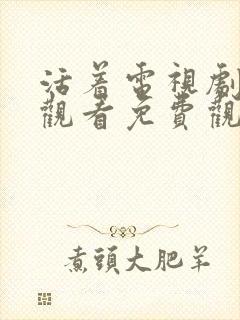 活着電視劇
觀看免費觀
煮頭大肥羊